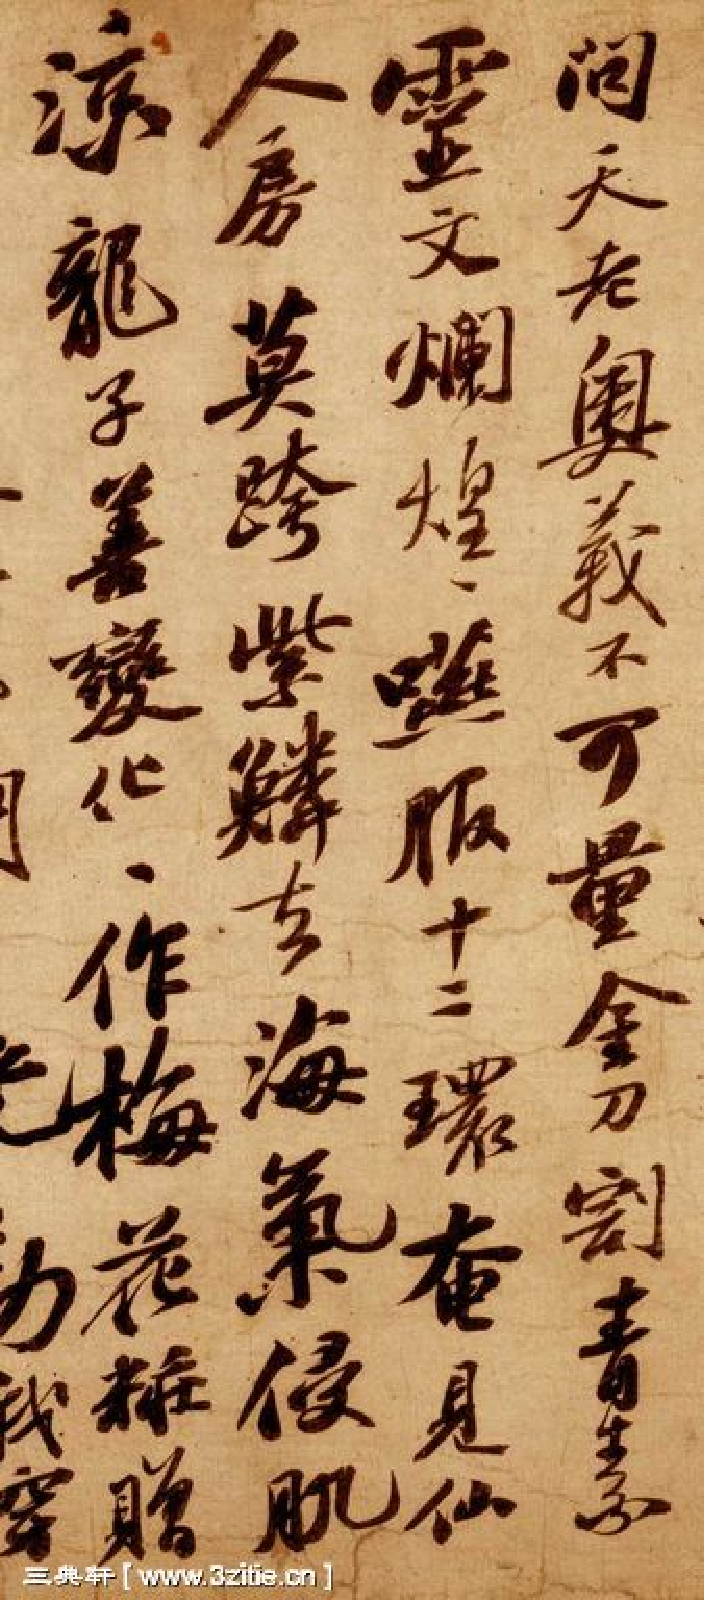 问天老奥義不可量金刀割青素
靈文爛煌煌嚥服十二環奄見仙
人房莫跨紫鱗去海氣侵肌
涼龍子善變化化作梅花粧贈
三典轩[www.3zitie.cn]